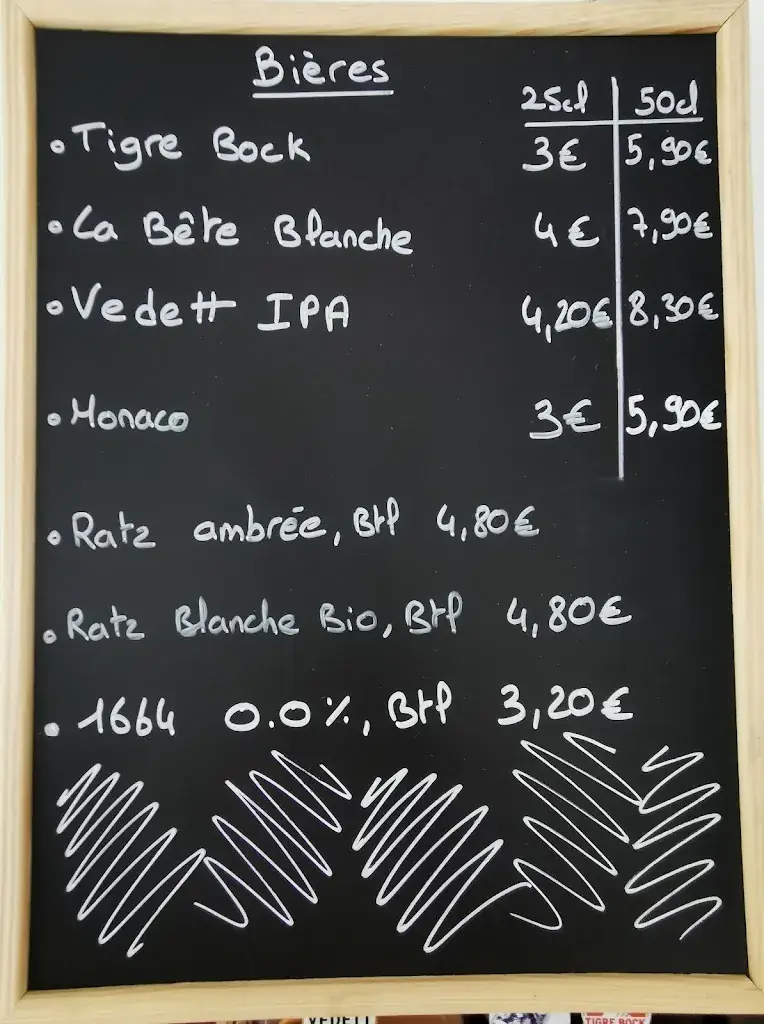 Bières
25cl 50cl
• Tigre Bock 3€ 5,90€
• La Bête Blanche 4€ 7,90€
• Vedett IPA 4,20€ 8,30€
• Monaco 3€ 5,90€
• Ratz ambrée, Btl 4,80€
• Ratz Blanche Bio, Btl 4,80€
• 1664 0.0%, Btl 3,20€
VEDETT
TIGRE BOCK